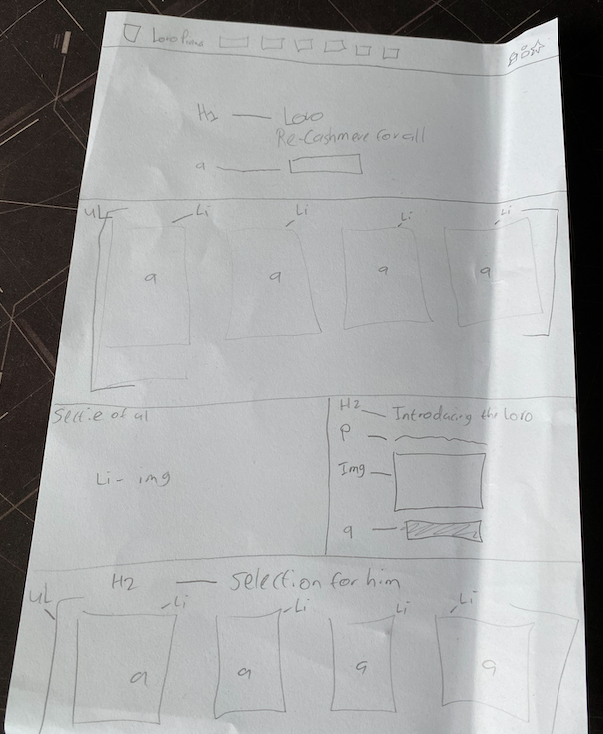 Loro Piana
H1 Loro
Re-Cashmere for all
a
UL Li Li Li Li
a a a a
Sectie of al
H2 Introducing the Loro
P
Li - img
Img
a
H2 Selection for him
UL Li Li Li Li
a a a a